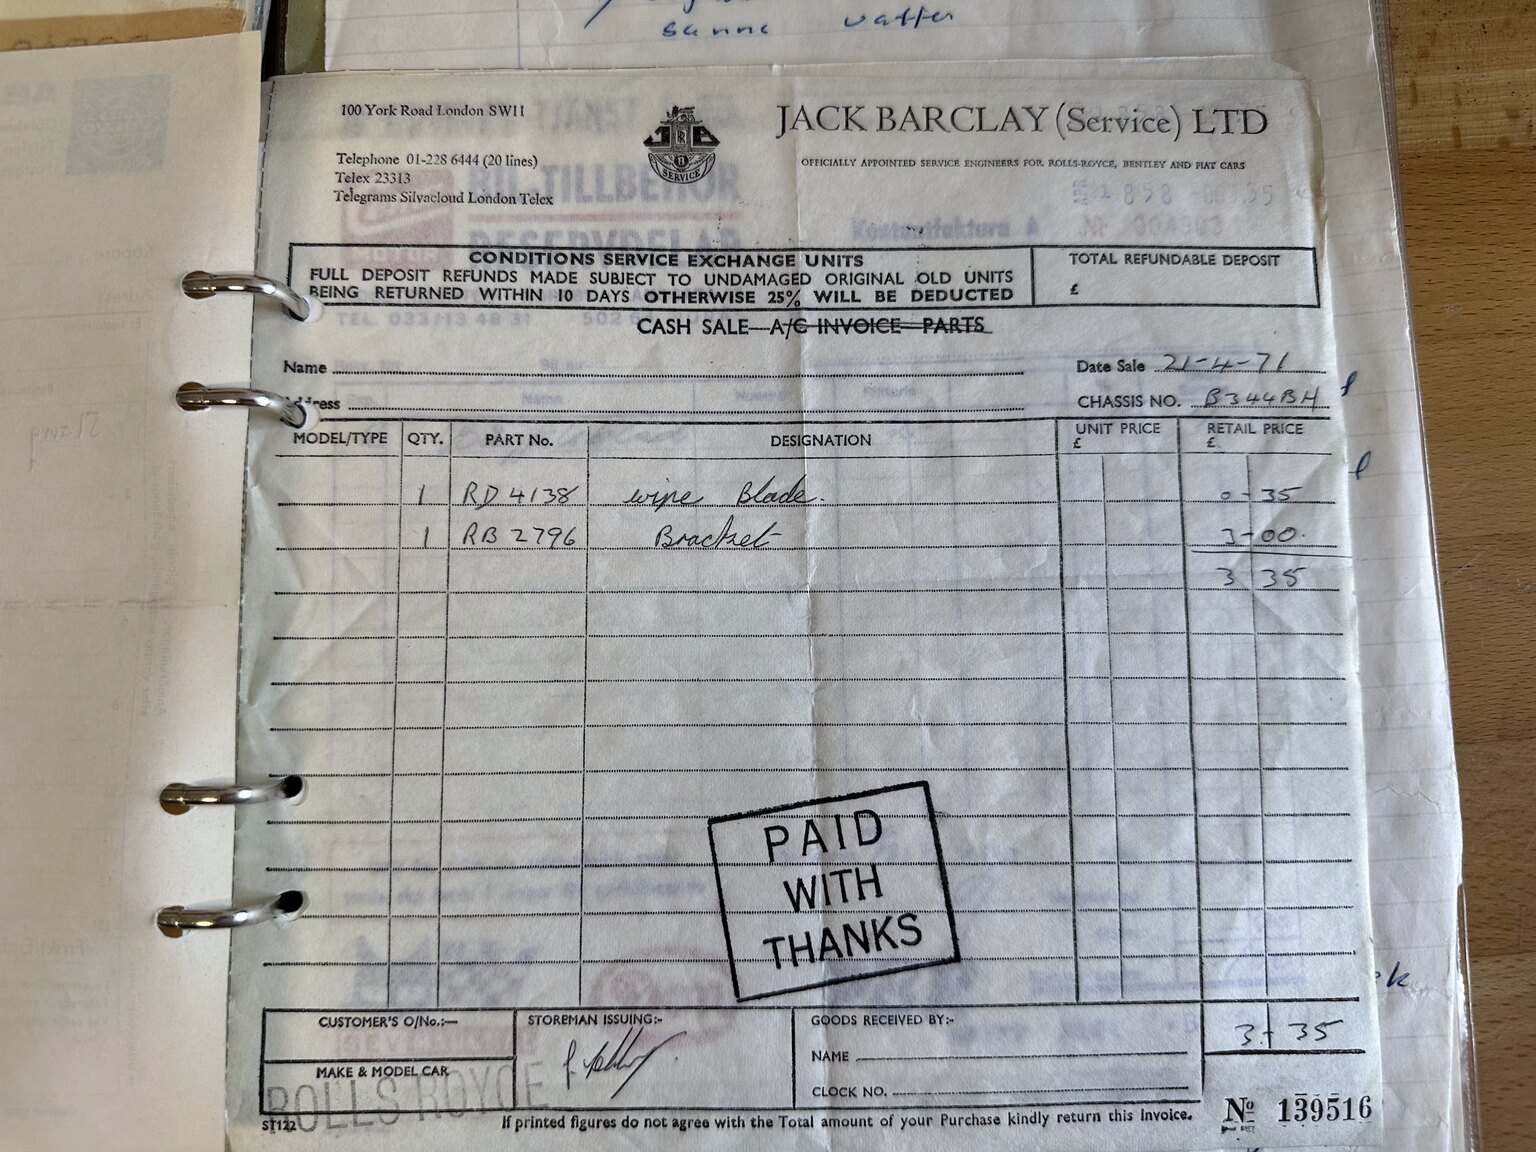 sanna
100 York Road London SW11
Telephone 01-228 6444 (20 lines)
Telex 23313
Telegrams Silvacloud London Telex
SERVICE
JACK BARCLAY (Service) LTD
OFFICIALLY APPOINTED SERVICE ENGINEERS FOR ROLLS-ROYCE, BENTLEY AND FIAT CARS
CONDITIONS SERVICE EXCHANGE UNITS
FULL DEPOSIT REFUNDS MADE SUBJECT TO UNDAMAGED ORIGINAL OLD UNITS
BEING RETURNED WITHIN 10 DAYS OTHERWISE 25% WILL BE DEDUCTED
TOTAL REFUNDABLE DEPOSIT
£
CASH SALE A/C INVOICE PARTS
Name
Date Sale 21-4-71
Address
CHASSIS NO. B344BH
MODEL/TYPE QTY. PART No. DESIGNATION UNIT PRICE £ RETAIL PRICE £
1 RD 4138 wipe Blade. 0-35
1 RB 2796 Bracket 3-00.
3 35
PAID
WITH
THANKS
CUSTOMER'S O/No.:-
STOREMAN ISSUING:-
GOODS RECEIVED BY:-
3-35
NAME
MAKE & MODEL CAR
CLOCK NO.
ROLLS ROYCE
ST122
If printed figures do not agree with the Total amount of your Purchase kindly return this Invoice.
No 139516